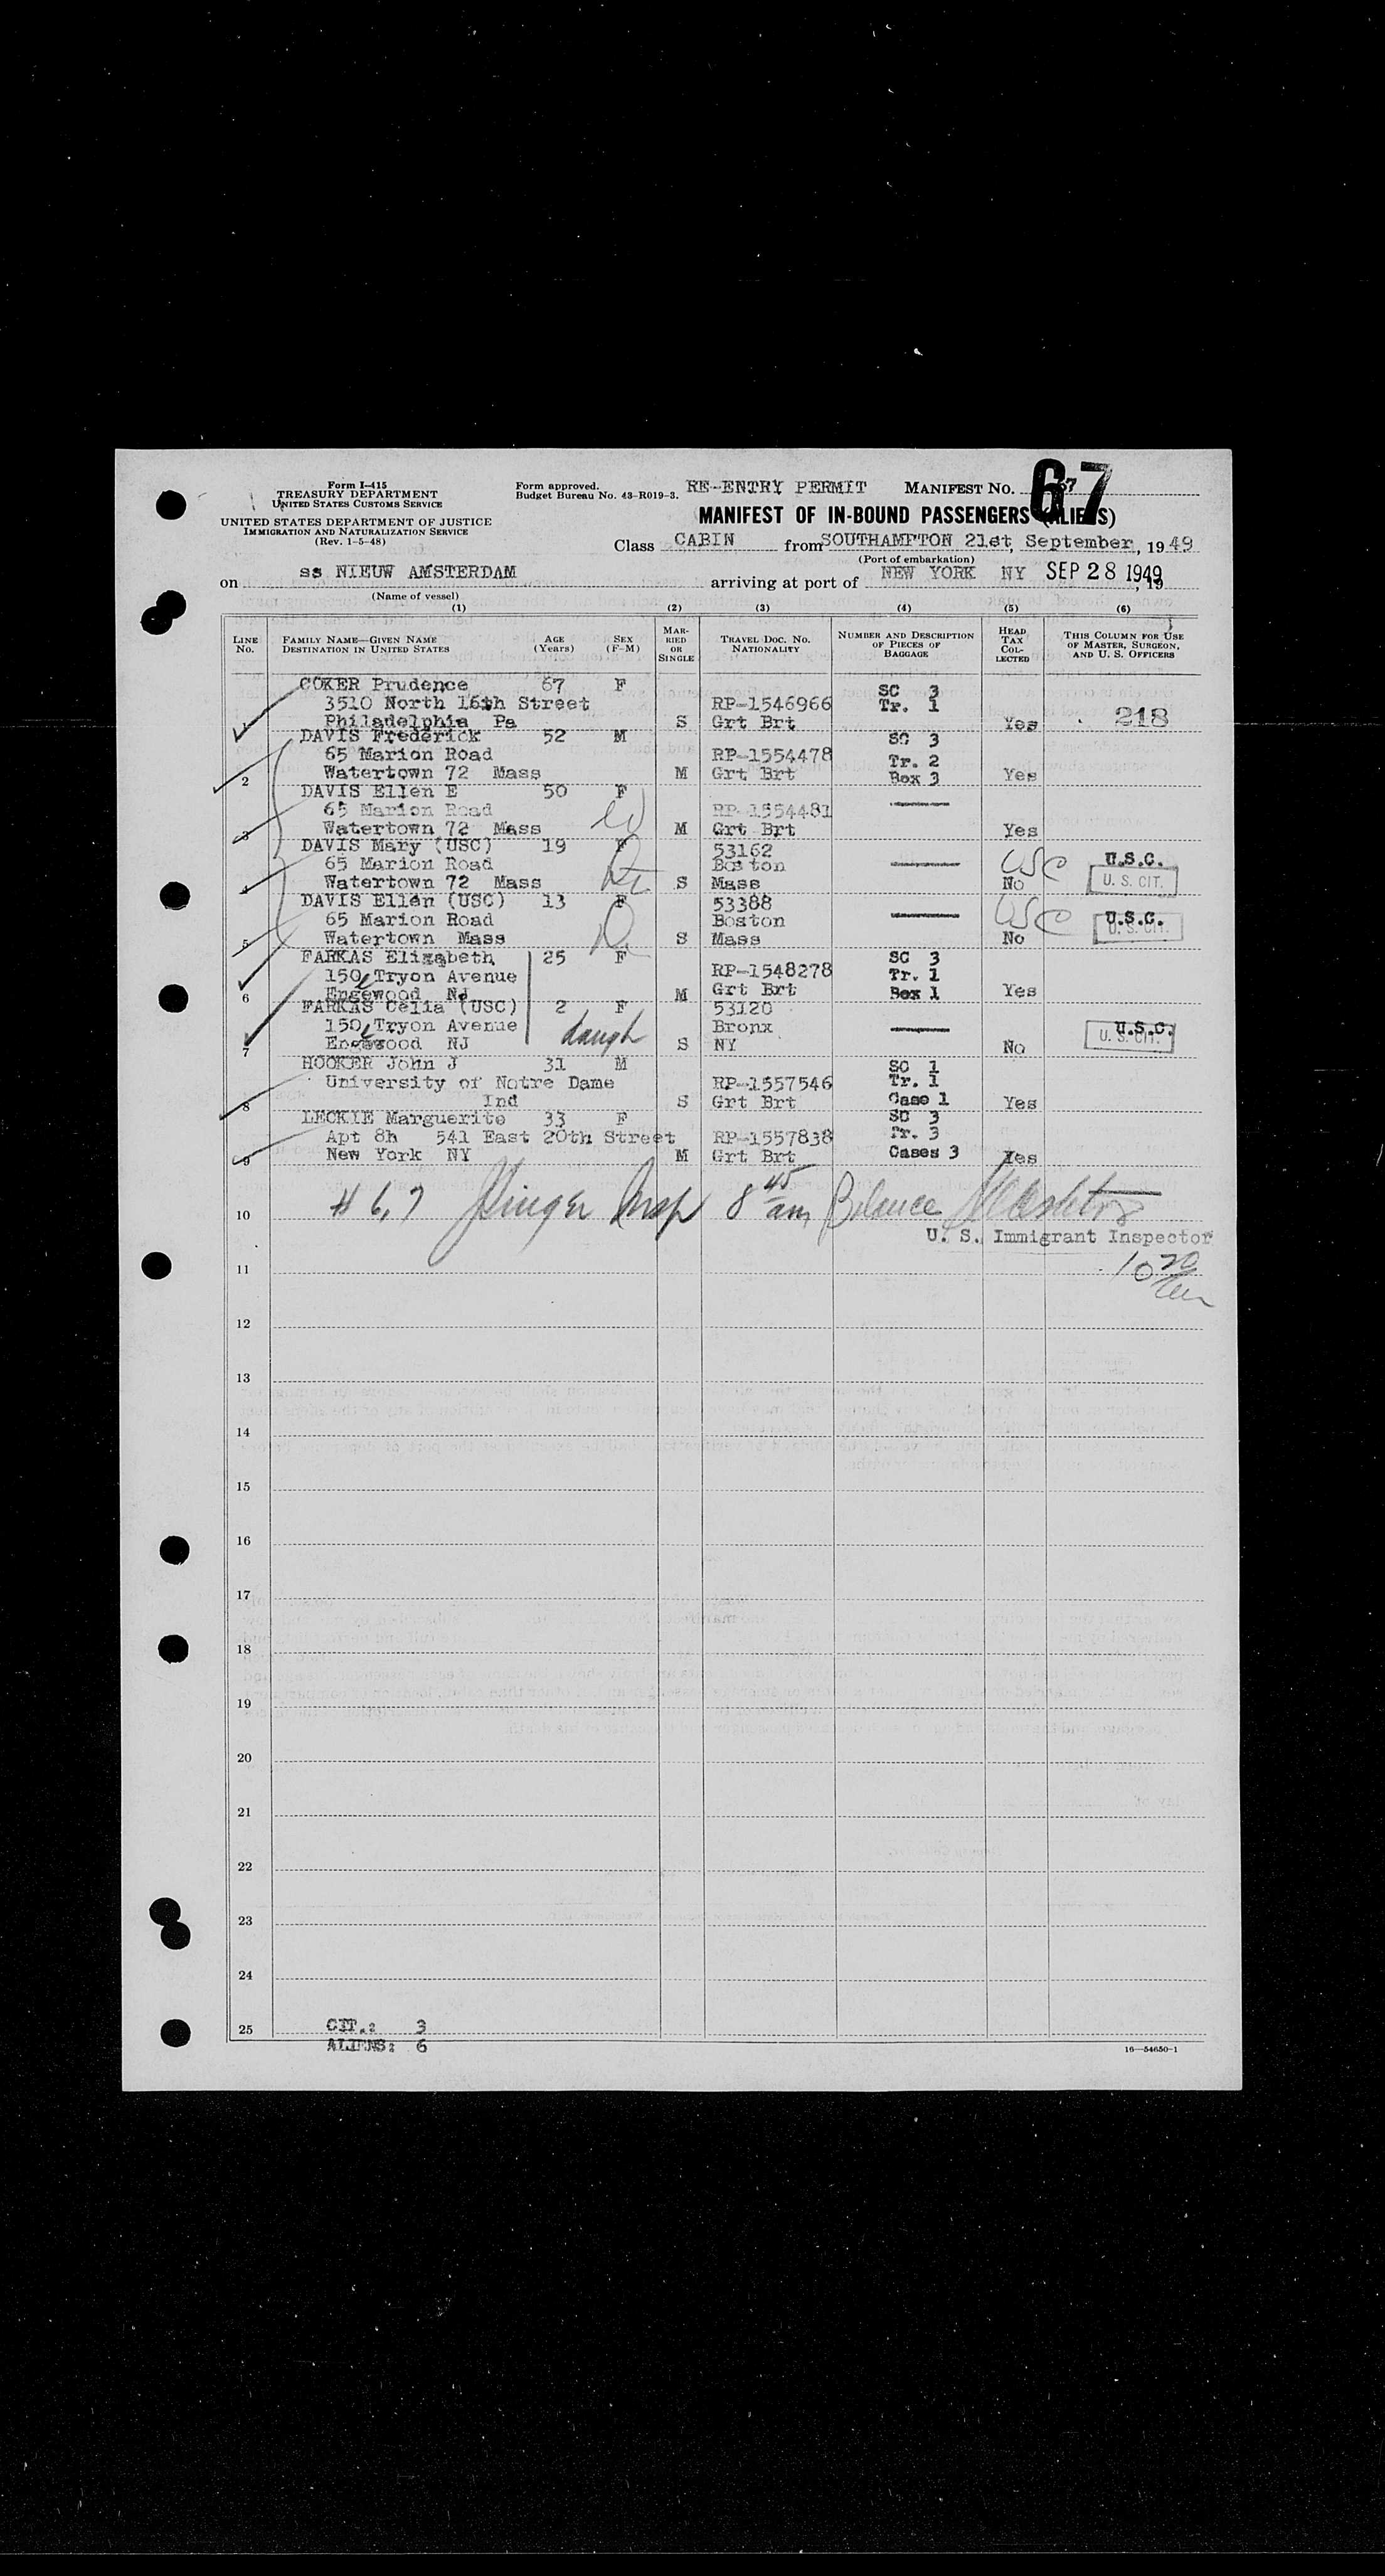 Form I-415
TREASURY DEPARTMENT
UNITED STATES CUSTOMS SERVICE
UNITED STATES DEPARTMENT OF JUSTICE
IMMIGRATION AND NATURALIZATION SERVICE
(Rev. 1-5-48)
Form approved.
Budget Bureau No. 43-R019-3.
RE-ENTRY PERMIT MANIFEST No. 67
67
MANIFEST OF IN-BOUND PASSENGERS (ALIENS)
Class CABIN from SOUTHAMPTON 21st, September, 1949
(Port of embarkation)
on ss NIEUW AMSTERDAM arriving at port of NEW YORK NY SEP 28 1949, 19
(Name of vessel)
(1) (2) (3) (4) (5) (6)
LINE No. FAMILY NAME—GIVEN NAME DESTINATION IN UNITED STATES AGE (Years) SEX (F-M) MARRIED OR SINGLE TRAVEL DOC. NO. NATIONALITY NUMBER AND DESCRIPTION OF PIECES OF BAGGAGE HEAD TAX COLLECTED THIS COLUMN FOR USE OF MASTER, SURGEON, AND U. S. OFFICERS
COKER Prudence 67 F SC 3
3510 North 16th Street RP-1546966 Tr. 1
1 Philadelphia Pa S Grt Brt Yes 218
DAVIS Frederick 52 M SC 3
65 Marion Road RP-1554478 Tr. 2
2 Watertown 72 Mass M Grt Brt Box 3 Yes
DAVIS Ellen E 50 F
65 Marion Road RP-1554481
3 Watertown 72 Mass M Grt Brt Yes
DAVIS Mary (USC) 19 F 53162
65 Marion Road Boston USC U.S.C.
4 Watertown 72 Mass S Mass No U. S. CIT.
DAVIS Ellen (USC) 13 F 53388
65 Marion Road Boston USC U.S.C.
5 Watertown Mass S Mass No U. S. CIT.
FARKAS Elizabeth 25 F SC 3
150 Tryon Avenue RP-1548278 Tr. 1
6 Engewood NJ M Grt Brt Box 1 Yes
FARKAS Celia (USC) 2 F 53120
150 Tryon Avenue daugh Bronx U.S.C.
7 Engewood NJ S NY No U. S. CIT.
HOOKER John J 31 M SC 1
University of Notre Dame RP-1557546 Tr. 1
8 Ind S Grt Brt Case 1 Yes
LECKIE Marguerite 33 F SC 3
Apt 8h 541 East 20th Street RP-1557838 Tr. 3
9 New York NY M Grt Brt Cases 3 Yes
10 # 6,7 Insp 8 45 am Balance
U. S. Immigrant Inspector
11 10 20 am
12
13
14
15
16
17
18
19
20
21
22
23
24
25 CIT.: 3
ALIENS: 6
16—54650-1